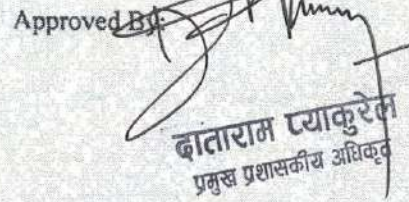 Approved By:
दाताराम प्याकुरेल
प्रमुख प्रशासकीय अधिकृत